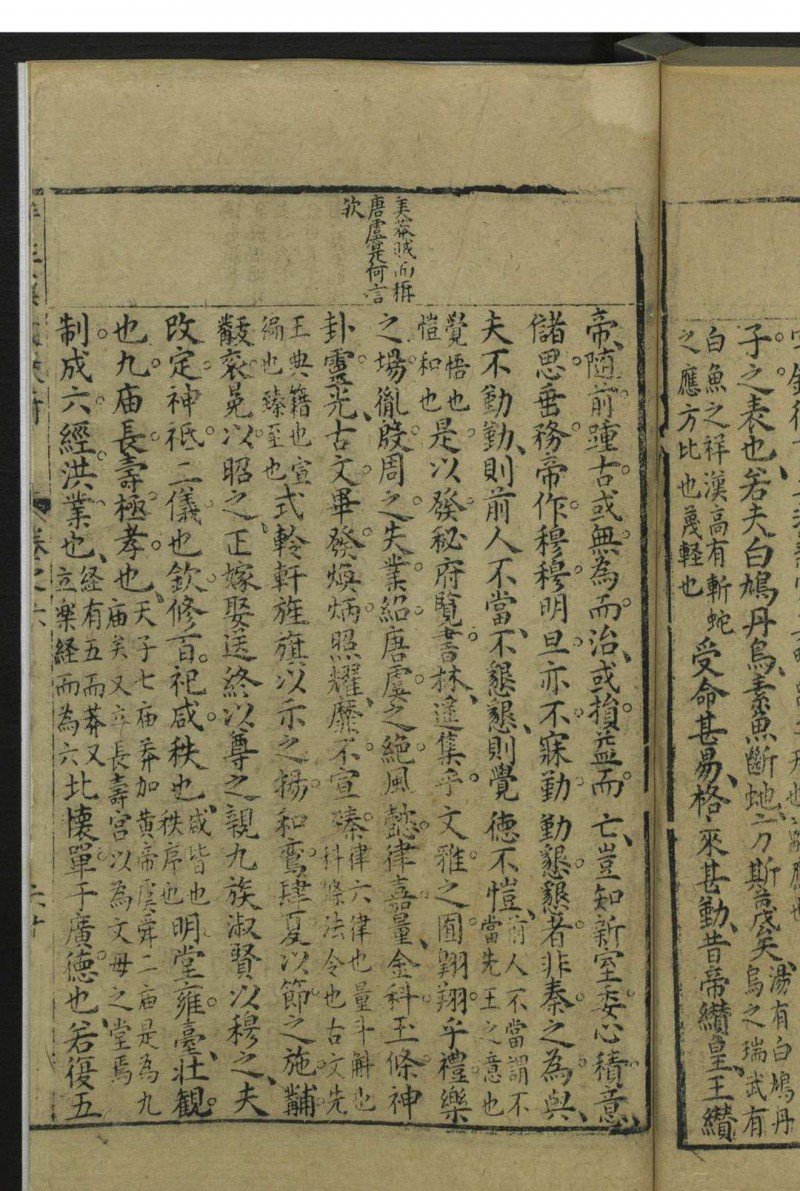 子之表也若夫白鳩丹烏素魚斷蛇方斯蔑矣湯有白鳩丹烏之瑞武有
白魚之祥漢高有斬蛇之應方比也蔑輕也受命甚易格來甚勤昔帝纘皇王纘
美莽賊而稱唐虞是何言欤
帝隨前踵古或無為而治或損益而亡豈知新室委心積意
儲思垂務帝作穆穆明旦亦不寐勤勤懇懇者非秦之為與
夫不勤勤則前人不當不懇懇則覺德不愷前人不當謂不當先王之意也
覺悟也愷和也是以發秘府覽書林遙集乎文雅之囿翱翔乎禮樂
之場胤殷周之失業紹唐虞之絶風懿律嘉量金科玉條神
卦靈兆古文畢發煥炳照耀靡不宣臻律六律也量斗斛也科條法令也古文先
王典籍也宣徧也臻至也式軨軒旂旗以示之揚和鸞肆夏以節之施黼
黻衮冕以昭之正嫁娶送終以尊之親九族淑賢以穆之夫
改定神祗二儀也欽修百祀咸秩也咸皆也秩序也明堂雍臺壯觀
也九庙長壽極孝也天子七庙莽加黄帝虞舜二庙是為九庙矣又立長壽宮以為文母之堂焉
制成六經洪業也経有五而莽又立樂経而為六北懷單于廣德也若復五
卷之六